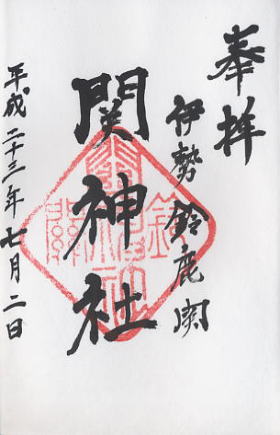 奉拝
伊勢鈴鹿関
関神社
平成二十三年七月二日